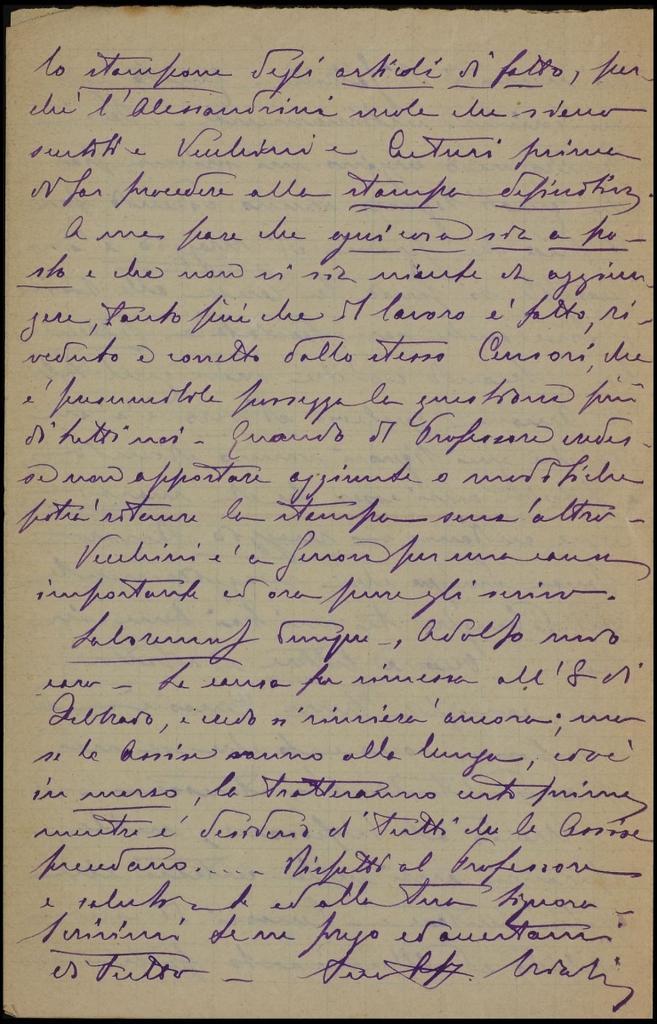 lo stampone degli articoli di fatto, per-
chè l'Alessandrini vuole che sieno
sentiti e Vecchini e Cuturi prima
di far procedere alla stampa definitiva.
A me pare che ogni cosa sia a po-
sto e che non vi sia niente da aggiun-
gere, tanto più che il lavoro è fatto, ri-
veduto e corretto dallo stesso Censori, che
è presumibile possegga la questione più
di tutti noi - Quando il Professore credes-
se non apportare aggiunte o modifiche
potrà ritenere la stampa senz'altro -
Vecchini è a Genova per una causa
importante ed ora pure gli scrivo.
Laboremus dunque -, Adolfo mio
caro - La causa fu rimessa all'8 di
Febbraio, e credo si rinvierà ancora; ma
se le Assise vanno alla lunga, cioè
in marzo, la tratteranno certo prima
mentre è desiderio di tutti che le Assise
precedano..... Rispetti al Professore
e saluti a te ed alla tua signora -
Scrivimi te ne prego ed avvertimi
di tutto -